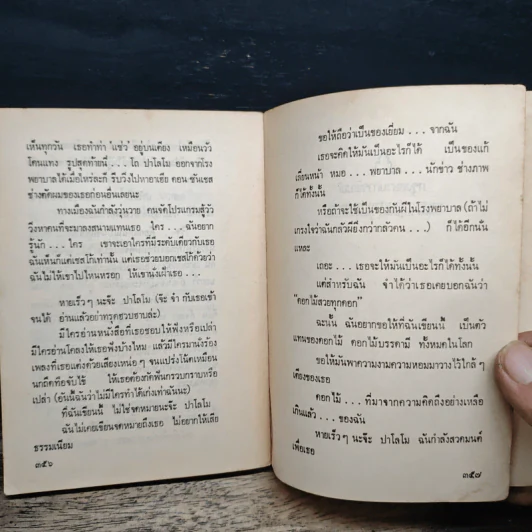 เห็นทุกวัน เธอทำท่า "แซ่ว" อยู่บนเตียง เหมือนวัว
โดนแทง รูปสุดท้ายนี่ ... โถ ปาโลโม ออกจากโรง
พยาบาลได้เมื่อไหร่ละก้อ รีบวิ่งไปหาอาเฮีย ดอน ซันเชส
ช่างตัดผมของเธอก่อนอื่นเลยนะ
ทางเมืองฉันกำลังวุ่นวาย คนจัดโปรแกรมสู้วัว
วิ่งหาคนที่จะมาลงสนามแทนเธอ ใคร ... ฉันอยาก
รู้นัก ... ใคร เขาจะเอาใครที่มีระดับเดียวกับเธอ
ฉันเห็นก็แต่เชสโก้เท่านั้น แต่เธอช่วยบอกเชสโก้ด้วยว่า
ฉันไม่ให้เขาไปไหนหรอก ให้เขานั่งเฝ้าเธอ ...
หายเร็ว ๆ นะจ๊ะ ปาโลโม
จนได้ อ่านแล้วอย่าหรุดฮวบฮาบล่ะ)
มีใครอ่านหนังสือที่เธอชอบให้ฟังหรือเปล่า
มีใครอ่านโคลงให้เธอฟังบ้างไหม แล้วมีใครมานั่งร้อง
เพลงที่เธอแต่งด้วยเสียงเหน่อ ๆ จนแปร่งโน้ตเหมือน
นกถึดทือจับไข้ ให้เธอต้องกัดฟันกรอบกราบหรือ
เปล่า (อันนี้ฉันว่าไม่มีใครทำได้เก่งเท่าฉันนะ)
ที่ฉันเขียนนี้ ไม่ใช่จดหมายนะจ๊ะ ปาโลโม
ฉันไม่เคยเขียนจดหมายถึงเธอ ไม่อยากให้เสีย
ธรรมเนียม
๓๕๖
ขอให้ถือว่าเป็นของเยี่ยม ... จากฉัน
เธอจะคิดให้มันเป็นอะไรก็ได้ เป็นของแก้
เลี่ยนหน้า หมอ ... พยาบาล ... นักข่าว ช่างภาพ
ก็ได้ทั้งนั้น
หรือถ้าจะใช้เป็นของกันผีในโรงพยาบาล (ถ้าไม่
เกรงใจว่าฉันกลัวผียิ่งกว่ากลัวคน ...) ก็ได้อีกนั่น
แหละ
เถอะ ... เธอจะให้มันเป็นอะไรก็ได้ทั้งนั้น
แต่สำหรับฉัน จำได้ว่าเธอเคยบอกฉันว่า
"ดอกไม้สวยทุกดอก"
ฉะนั้น ฉันอยากขอให้ที่ฉันเขียนนี้ เป็นตัว
แทนของดอกไม้ ดอกไม้บรรดามี ทั้งหมดในโลก
ขอให้มันพาความงามความหอมมาวางไว้ใกล้ ๆ
เตียงของเธอ
ดอกไม้ ... ที่มาจากความคิดถึงอย่างเหลือ
เกินแล้ว ... ของฉัน
หายเร็ว ๆ นะจ๊ะ ปาโลโม ฉันกำลังสวดมนต์
เพื่อเธอ
๓๕๗